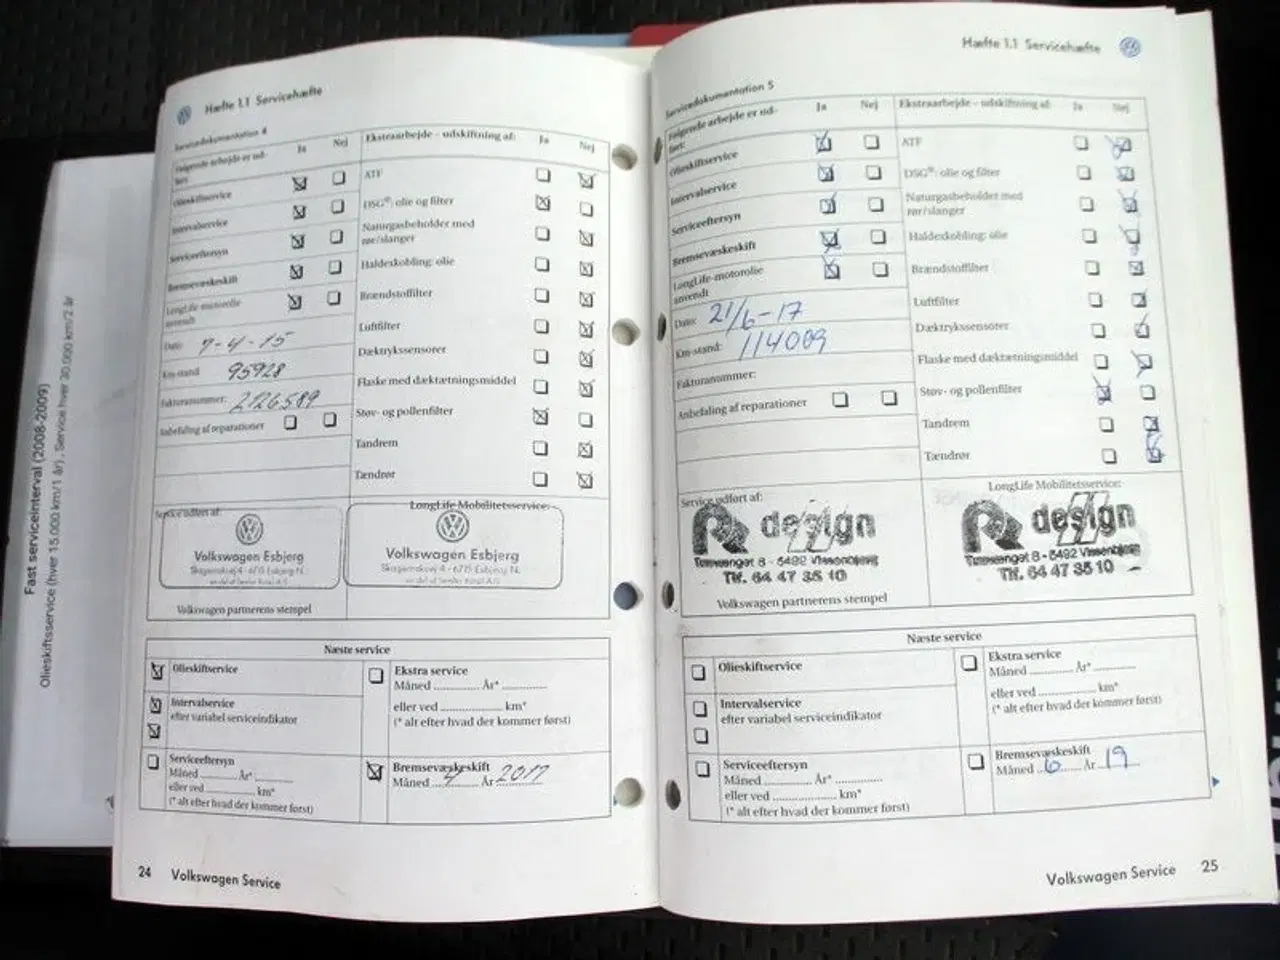 Fast serviceinterval (2008-2009)
Olieskiftsservice (hver 15.000 km/1 år), Service hver 30.000 km/2 år
Hæfte 1.1 Servicehæfte
Servicedokumentation 4
Følgende arbejde er ud-
ført:
Ja Nej
Ekstraarbejde – udskiftning af:
Ja Nej
Olieskiftservice
Intervalservice
Serviceeftersyn
Bremsevæskeskift
LongLife-motorolie
anvendt
Dato: 7-4-15
Km-stand: 95928
Fakturanummer: 2126589
Anbefaling af reparationer
ATF
DSG®: olie og filter
Naturgasbeholder med
rør/slanger
Haldexkobling: olie
Brændstoffilter
Luftfilter
Dæktrykssensorer
Flaske med dæktætningsmiddel
Støv- og pollenfilter
Tandrem
Tændrør
Service udført af:
LongLife Mobilitetsservice:
Volkswagen Esbjerg
Skagenskvej 4 - 6715 Esbjerg N.
Volkswagen Esbjerg
Skagenskvej 4 - 6715 Esbjerg N.
Volkswagen partnerens stempel
Næste service
Olieskiftservice
Intervalservice
efter variabel serviceindikator
Serviceeftersyn
Måned ............ År* ............
eller ved ............ km*
(* alt efter hvad der kommer først)
Ekstra service
Måned ............ År* ............
eller ved ............ km*
(* alt efter hvad der kommer først)
Bremsevæskeskift
Måned 4 År 2017
24 Volkswagen Service
Hæfte 1.1 Servicehæfte
Servicedokumentation 5
Følgende arbejde er ud-
ført:
Ja Nej
Ekstraarbejde – udskiftning af:
Ja Nej
Olieskiftservice
Intervalservice
Serviceeftersyn
Bremsevæskeskift
LongLife-motorolie
anvendt
Dato: 21/6-17
Km-stand: 114009
Fakturanummer:
Anbefaling af reparationer
ATF
DSG®: olie og filter
Naturgasbeholder med
rør/slanger
Haldexkobling: olie
Brændstoffilter
Luftfilter
Dæktrykssensorer
Flaske med dæktætningsmiddel
Støv- og pollenfilter
Tandrem
Tændrør
Service udført af:
LongLife Mobilitetsservice:
design
8 - 5492 Vissenbjerg
Tlf. 64 47 35 10
design
8 - 5492 Vissenbjerg
Tlf. 64 47 35 10
Volkswagen partnerens stempel
Næste service
Olieskiftservice
Intervalservice
efter variabel serviceindikator
Serviceeftersyn
Måned ............ År* ............
eller ved ............ km*
(* alt efter hvad der kommer først)
Ekstra service
Måned ............ År* ............
eller ved ............ km*
(* alt efter hvad der kommer først)
Bremsevæskeskift
Måned 6 År 19
Volkswagen Service 25